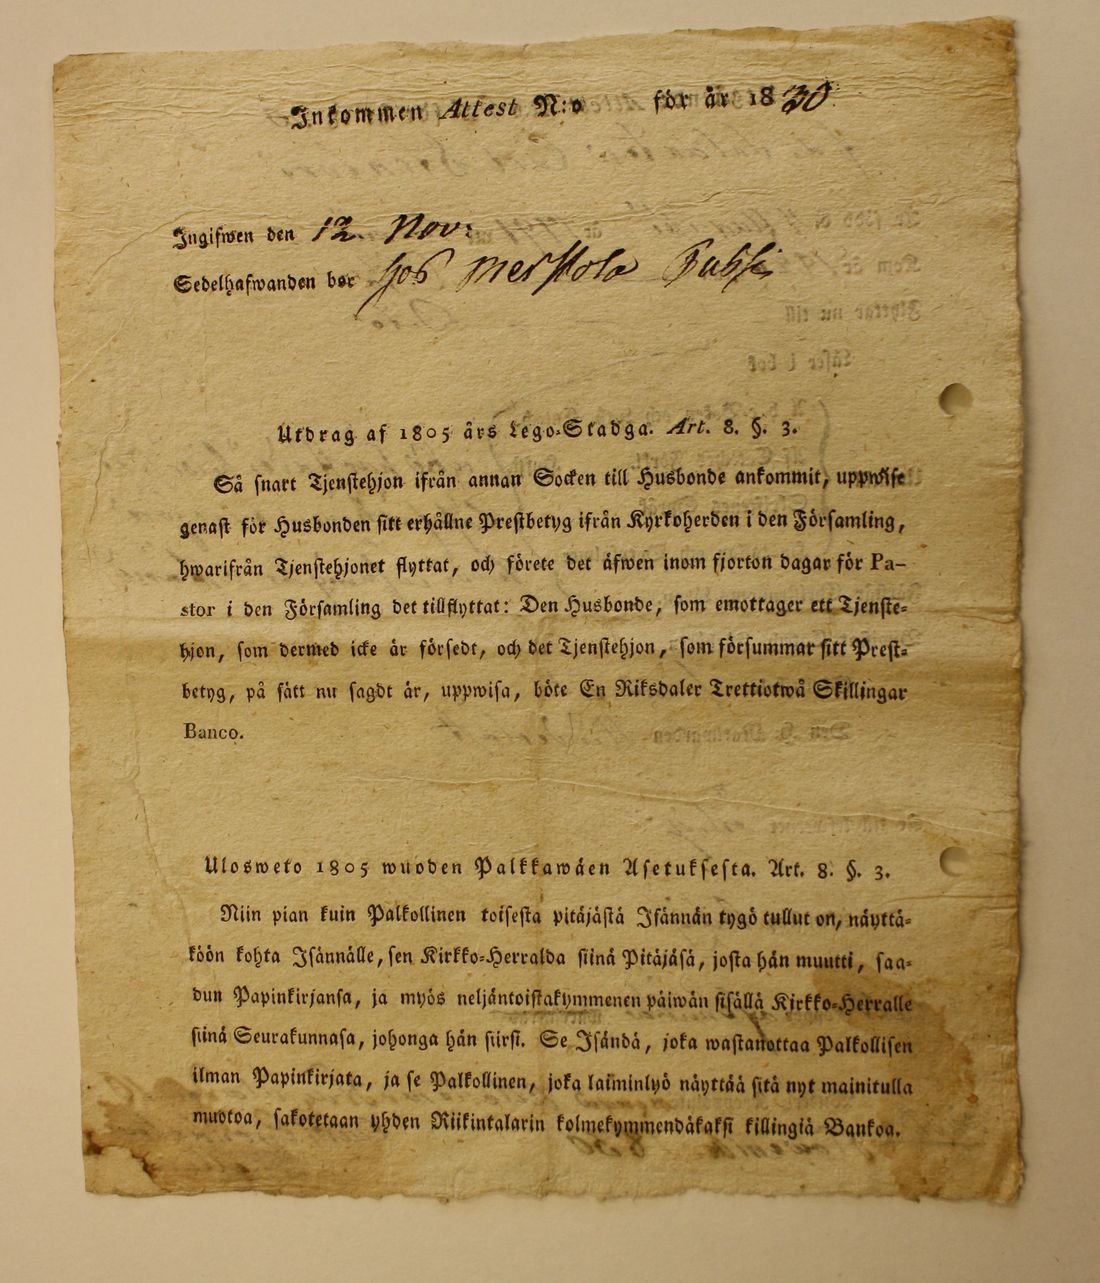 Inkommen Attest N:o för år 1830
Ingifwen den 12 Nov:
Sedelhafwanden bor hos
Utdrag af 1805 års Lego-Stadga. Art. 8. §. 3.
Så snart Tjenstehjon ifrån annan Socken till Husbonde ankommit, uppwise
genast för Husbonden sitt erhållne Prestbetyg ifrån Kyrkoherden i den Församling,
hwarifrån Tjenstehjonet flyttat, och förete det äfwen inom fjorton dagar för Pa-
stor i den Församling det tillflyttat: Den Husbonde, som emottager ett Tjenste-
hjon, som dermed icke är försedt, och det Tjenstehjon, som försummar sitt Prest-
betyg, på sätt nu sagdt är, uppwisa, böte En Riksdaler Trettiotwå Skillingar
Banco.
Ulosweto 1805 wuoden Palkkawäen Asetuksesta. Art. 8. §. 3.
Niin pian kuin Palkollinen toisesta pitäjästä Isännän tygö tullut on, näyttä-
köön kohta Isännälle, sen Kirkko-Herralda siinä Pitäjäsä, josta hän muutti, saa-
dun Papinkirjansa, ja myös neljäntoistakymmenen päiwän sisällä Kirkko-Herralle
siinä Seurakunnasa, johonga hän siirsi. Se Isändä, joka wastanottaa Palkollisen
ilman Papinkirjata, ja se Palkollinen, joka laiminlyö näyttää sitä nyt mainitulla
muotoa, sakotetaan yhden Riikintalarin kolmekymmendäkaksi killingiä Bankoa.